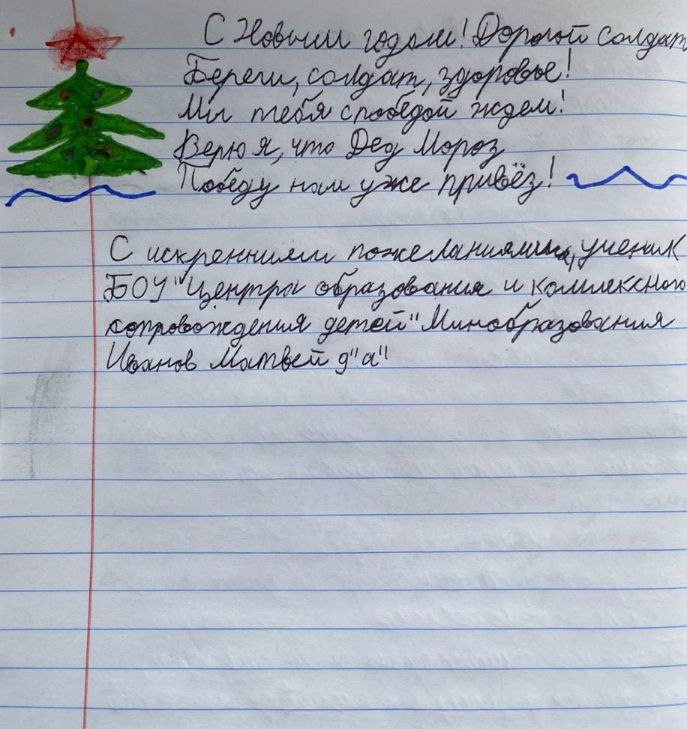 С Новым годом! Дорогой солдат
Береги, солдат, здоровье!
Мы тебя с победой ждем!
Верю я, что Дед Мороз
Победу нам уже привёз!
С искренними пожеланиями, ученик
БОУ "Центра образования и комплексного
сопровождения детей" Минобразования
Иванов Матвей 9"а"